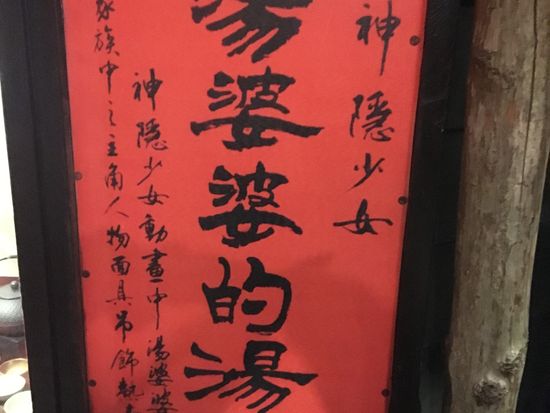 神隱少女
湯婆婆的湯
神隱少女動畫中湯婆婆
家族中之主角人物面具吊飾熱